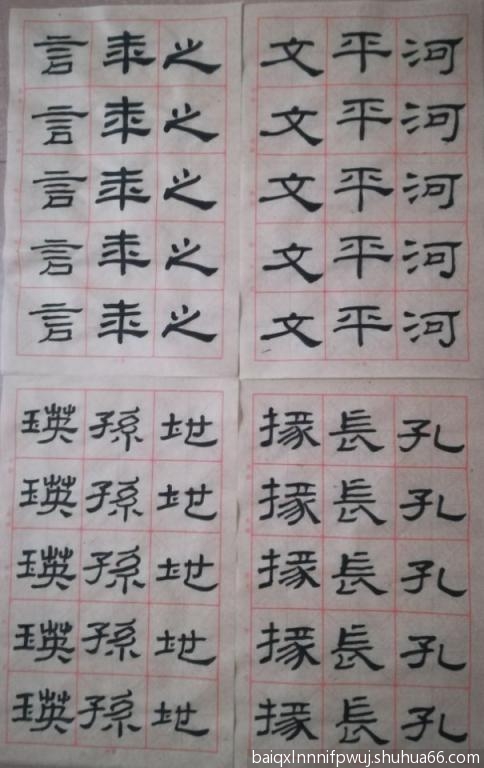 河河河河河
平平平平平
文文文文文
之之之之之
言言言言言
孔孔孔孔孔
長長長長長
掾掾掾掾掾
地地地地地
孫孫孫孫孫
瑛瑛瑛瑛瑛
baiqxlnnnifpwuj.shuhua66.com